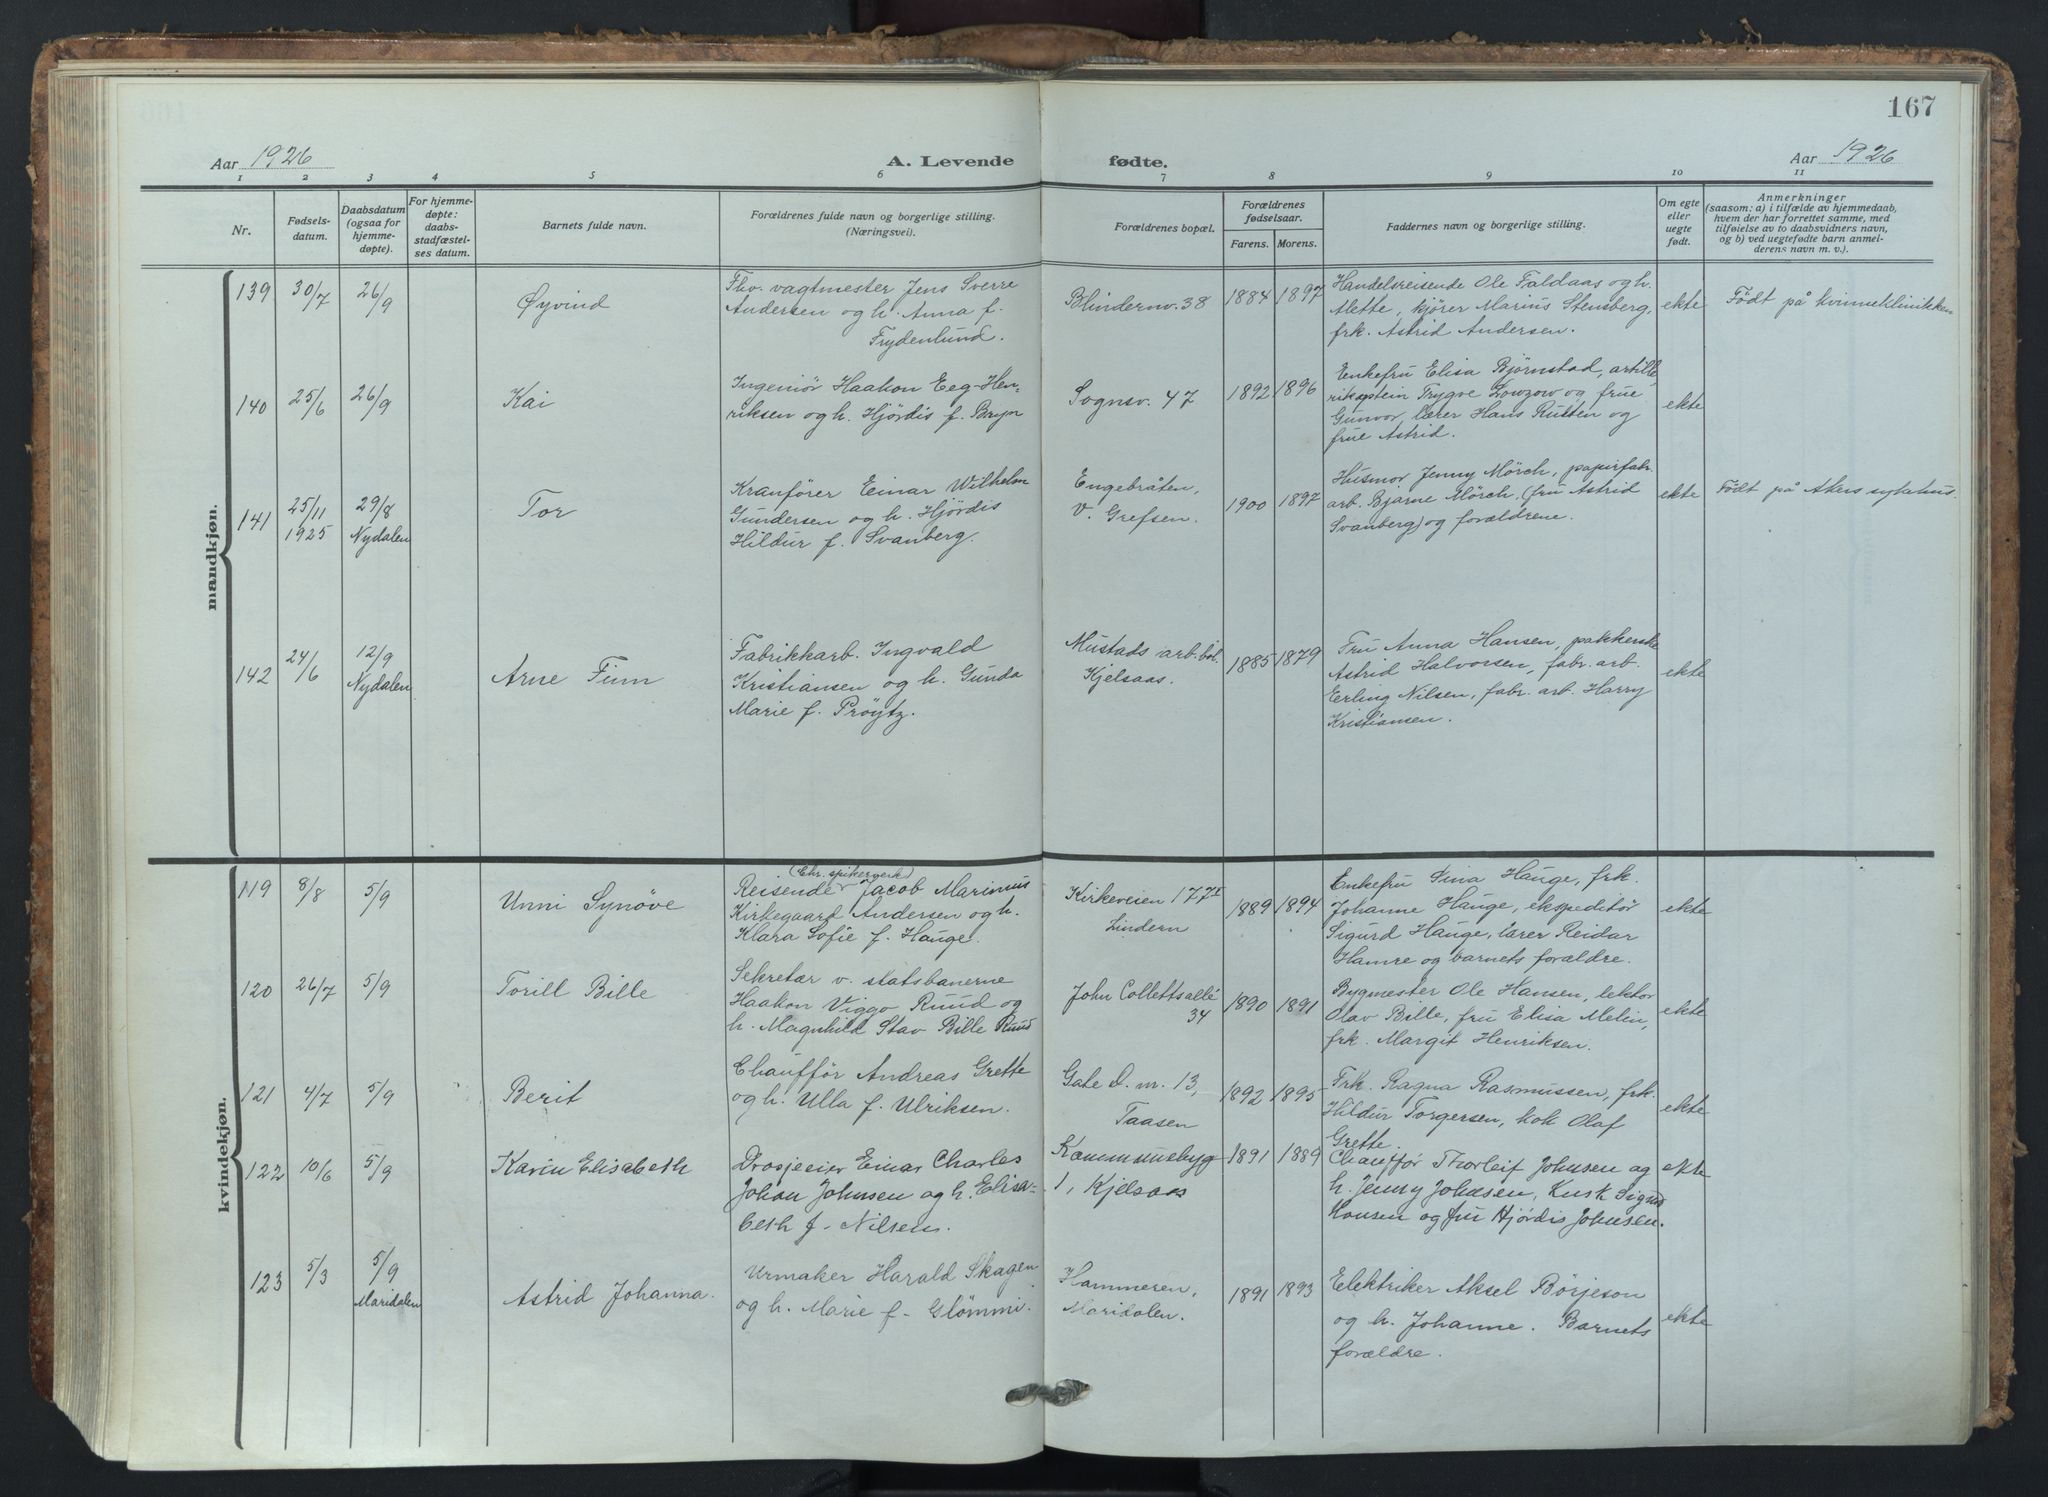 167
Aar 1926
A. Levende fødte.
Aar 1926
1 2 3 4 5 6 7 8 9 10 11
Nr.
Fødsels-
datum.
Daabsdatum
(ogsaa for
hjemme-
døpte).
For hjemme-
døpte:
daabs-
stadfæstel-
ses datum.
Barnets fulde navn.
Forældrenes fulde navn og borgerlige stilling.
(Næringsvei).
Forældrenes bopæl.
Forældrenes
fødselsaar.
Farens. Morens.
Faddernes navn og borgerlige stilling.
Om egte
eller
uegte
født.
Anmerkninger
(saasom: a) i tilfælde av hjemmedaab,
hvem der har forrettet samme, med
tilføielse av to daabsvidners navn,
og b) ved uegtefødte barn anmel-
derens navn m. v.).
mandkjøn.
139 30/7 26/9
Øyvind
Fhv. vagtmester Jens Sverre
Andersen og h. Anna f.
Frydenlund.
Blindernv. 38
1884 1897
Handelsreisende Ole Faldaas og h.
Mette, kjører Marius Stensberg,
frk. Astrid Andersen.
ekte
Født på kvinneklinikken
140 25/6 26/9
Kai
Ingeniør Haakon Eeg-Hen-
riksen og h. Hjördis f. Bryn
Sognsv. 47
1892 1896
Enkefru Elisa Bjørnstad, artille-
rikaptein Trygve Lowzow og frue
Gunvor, lærer Hans Rusten og
frue Astrid.
ekte
141 25/11 1925 29/8 Nydalen
Tor
Kranfører Einar Wilhelm
Gundersen og h. Hjördis
Hildur f. Svanberg.
Engebråten,
V. Grefsen.
1900 1897
Husmor Jenny Mörch, papirfabr.
arb. Bjarne Mörch, (fru Astrid
Svanberg) og forældrene.
ekte
Født på Akers sykehus.
142 24/6 12/9 Nydalen
Arne Finn
Fabrikkarb. Ingvald
Kristiansen og h. Gunda
Marie f. Pröytz.
Mustads arb.bol.
Kjelsaas.
1885 1879
Fru Anna Hansen, pakkerske
Astrid Halvorsen, fabr. arb.
Erling Nilsen, fabr. arb. Harry
Kristiansen.
ekte
kvindekjøn.
119 8/8 5/9
Unni Synöve
(Chr. spikerverk)
Reisende Jacob Marinius
Kirkegaard Andersen og h.
Klara Sofie f. Hauge.
Kirkeveien 177 I
Lindern
1889 1894
Enkefru Sina Hauge, frk.
Johanne Hauge, ekspeditör
Sigurd Hauge, lærer Reidar
Hamre og barnets forældre.
ekte
120 26/7 5/9
Torill Bille
Sekretær v. statsbanerne
Haakon Viggo Ruud og
h. Magnhild Stav Bille Ruud
John Collettsallé
34
1890 1891
Bygmester Ole Hansen, lektor
Olav Bille, fru Elisa Melin,
frk. Margit Henriksen.
ekte
121 4/7 5/9
Berit
Chaufför Andreas Grette
og h. Ulla f. Ulriksen.
Gate D. nr. 13,
Taasen
1892 1895
Frk. Ragna Rasmussen, frk.
Hildur Torgersen, kok Olaf
Grette.
ekte
122 10/6 5/9
Karin Elisabeth
Drosjeeier Einar Charles
Johan Johnsen og h. Elisa-
beth f. Nilsen.
Kommunebyg
1, Kjelsaas
1891 1889
Chauffør Thorleif Johnsen og
h. Jenny Johnsen, Kusk Sigurd
Hansen og fru Hjördis Johnsen.
ekte
123 5/3 5/9 Maridalen
Astrid Johanna.
Urmaker Harald Skagen
og h. Marie f. Glömmi.
Hammeren,
Maridalen.
1891 1893
Eelektriker Aksel Børjeson
og h. Johanne. Barnets
forældre.
ekte